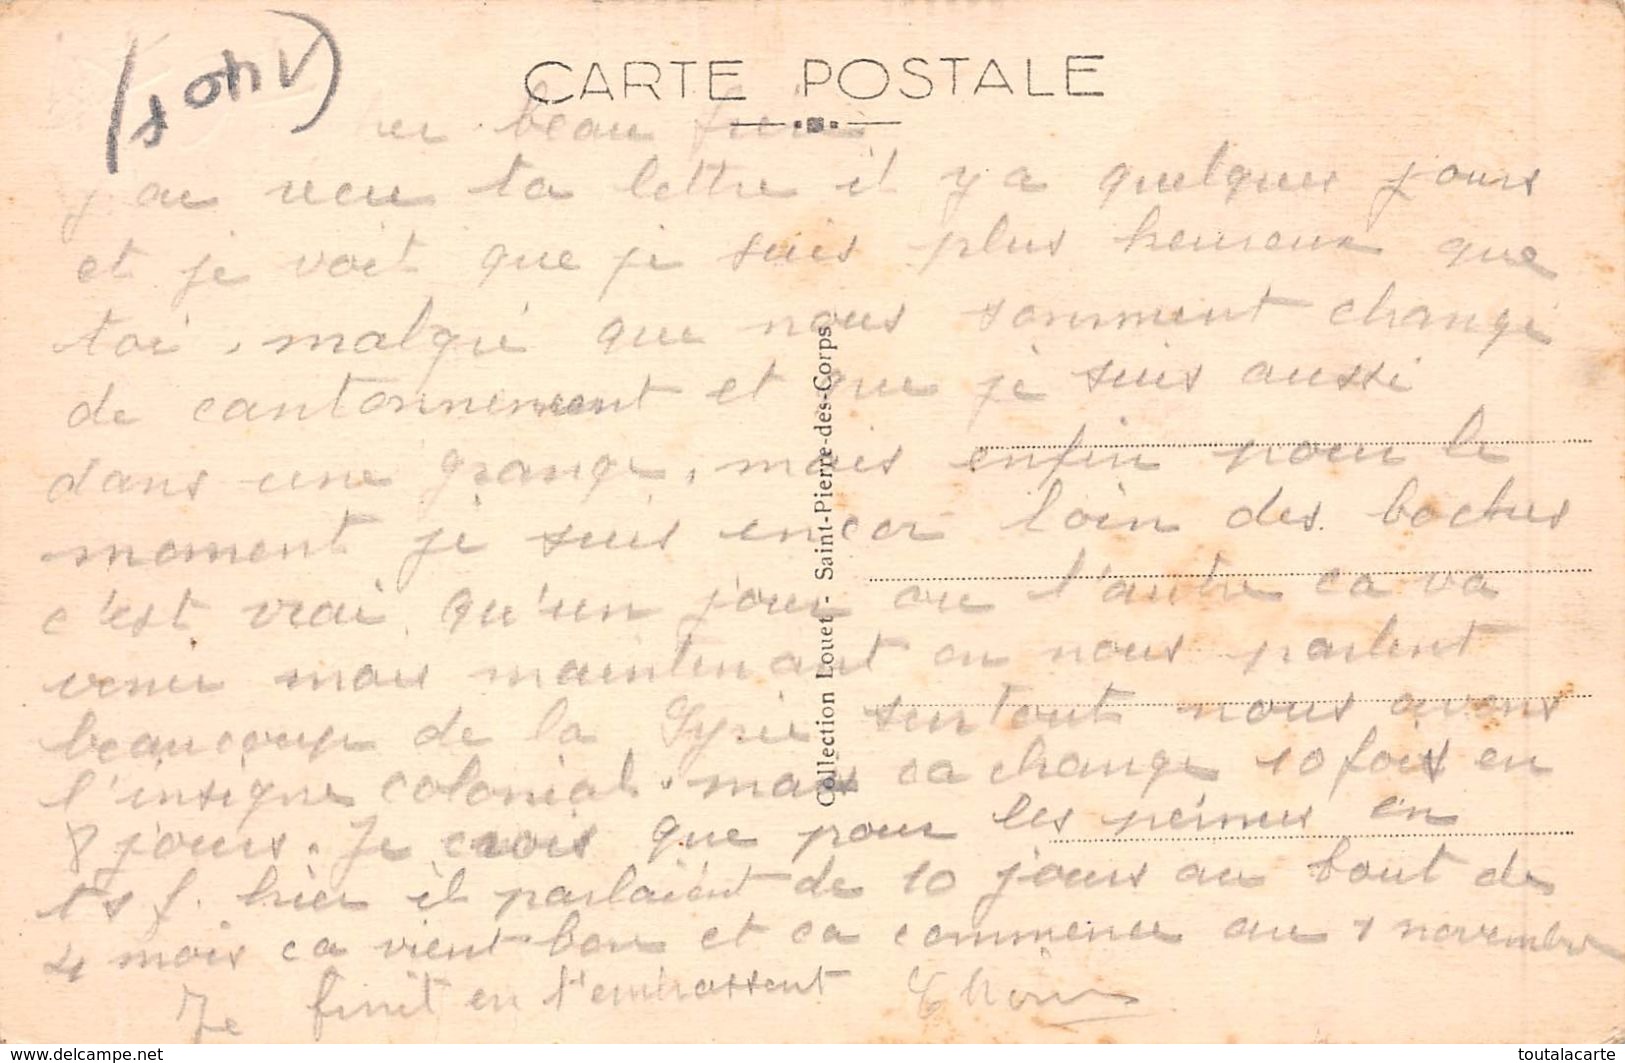 CARTE POSTALE
her beau frère
j ai recu ta lettre il y a quelques jours
et je voit que je suis plus heureux que
toi, malgré que nous somment changé
de cantonnement et que je suis aussi
dans une grange, mais enfin pour le
moment je suis encor loin des boches
c'est vrai qu'un jour ou l'autre ca va
venir mais maintenant on nous parlent
beaucoup de la Syrie surtout nous avons
l'insigne colonial. mais ca change 10 fois en
8 jours. Je crois que pour les permes en
t s f. hier il parlaient de 10 jours au bout de
4 mois ca vient bon et ca commence au 1 novembre
Je finit en t'embrassent
Collection Louet - Saint-Pierre-des-Corps
www.delcampe.net
toutalacarte